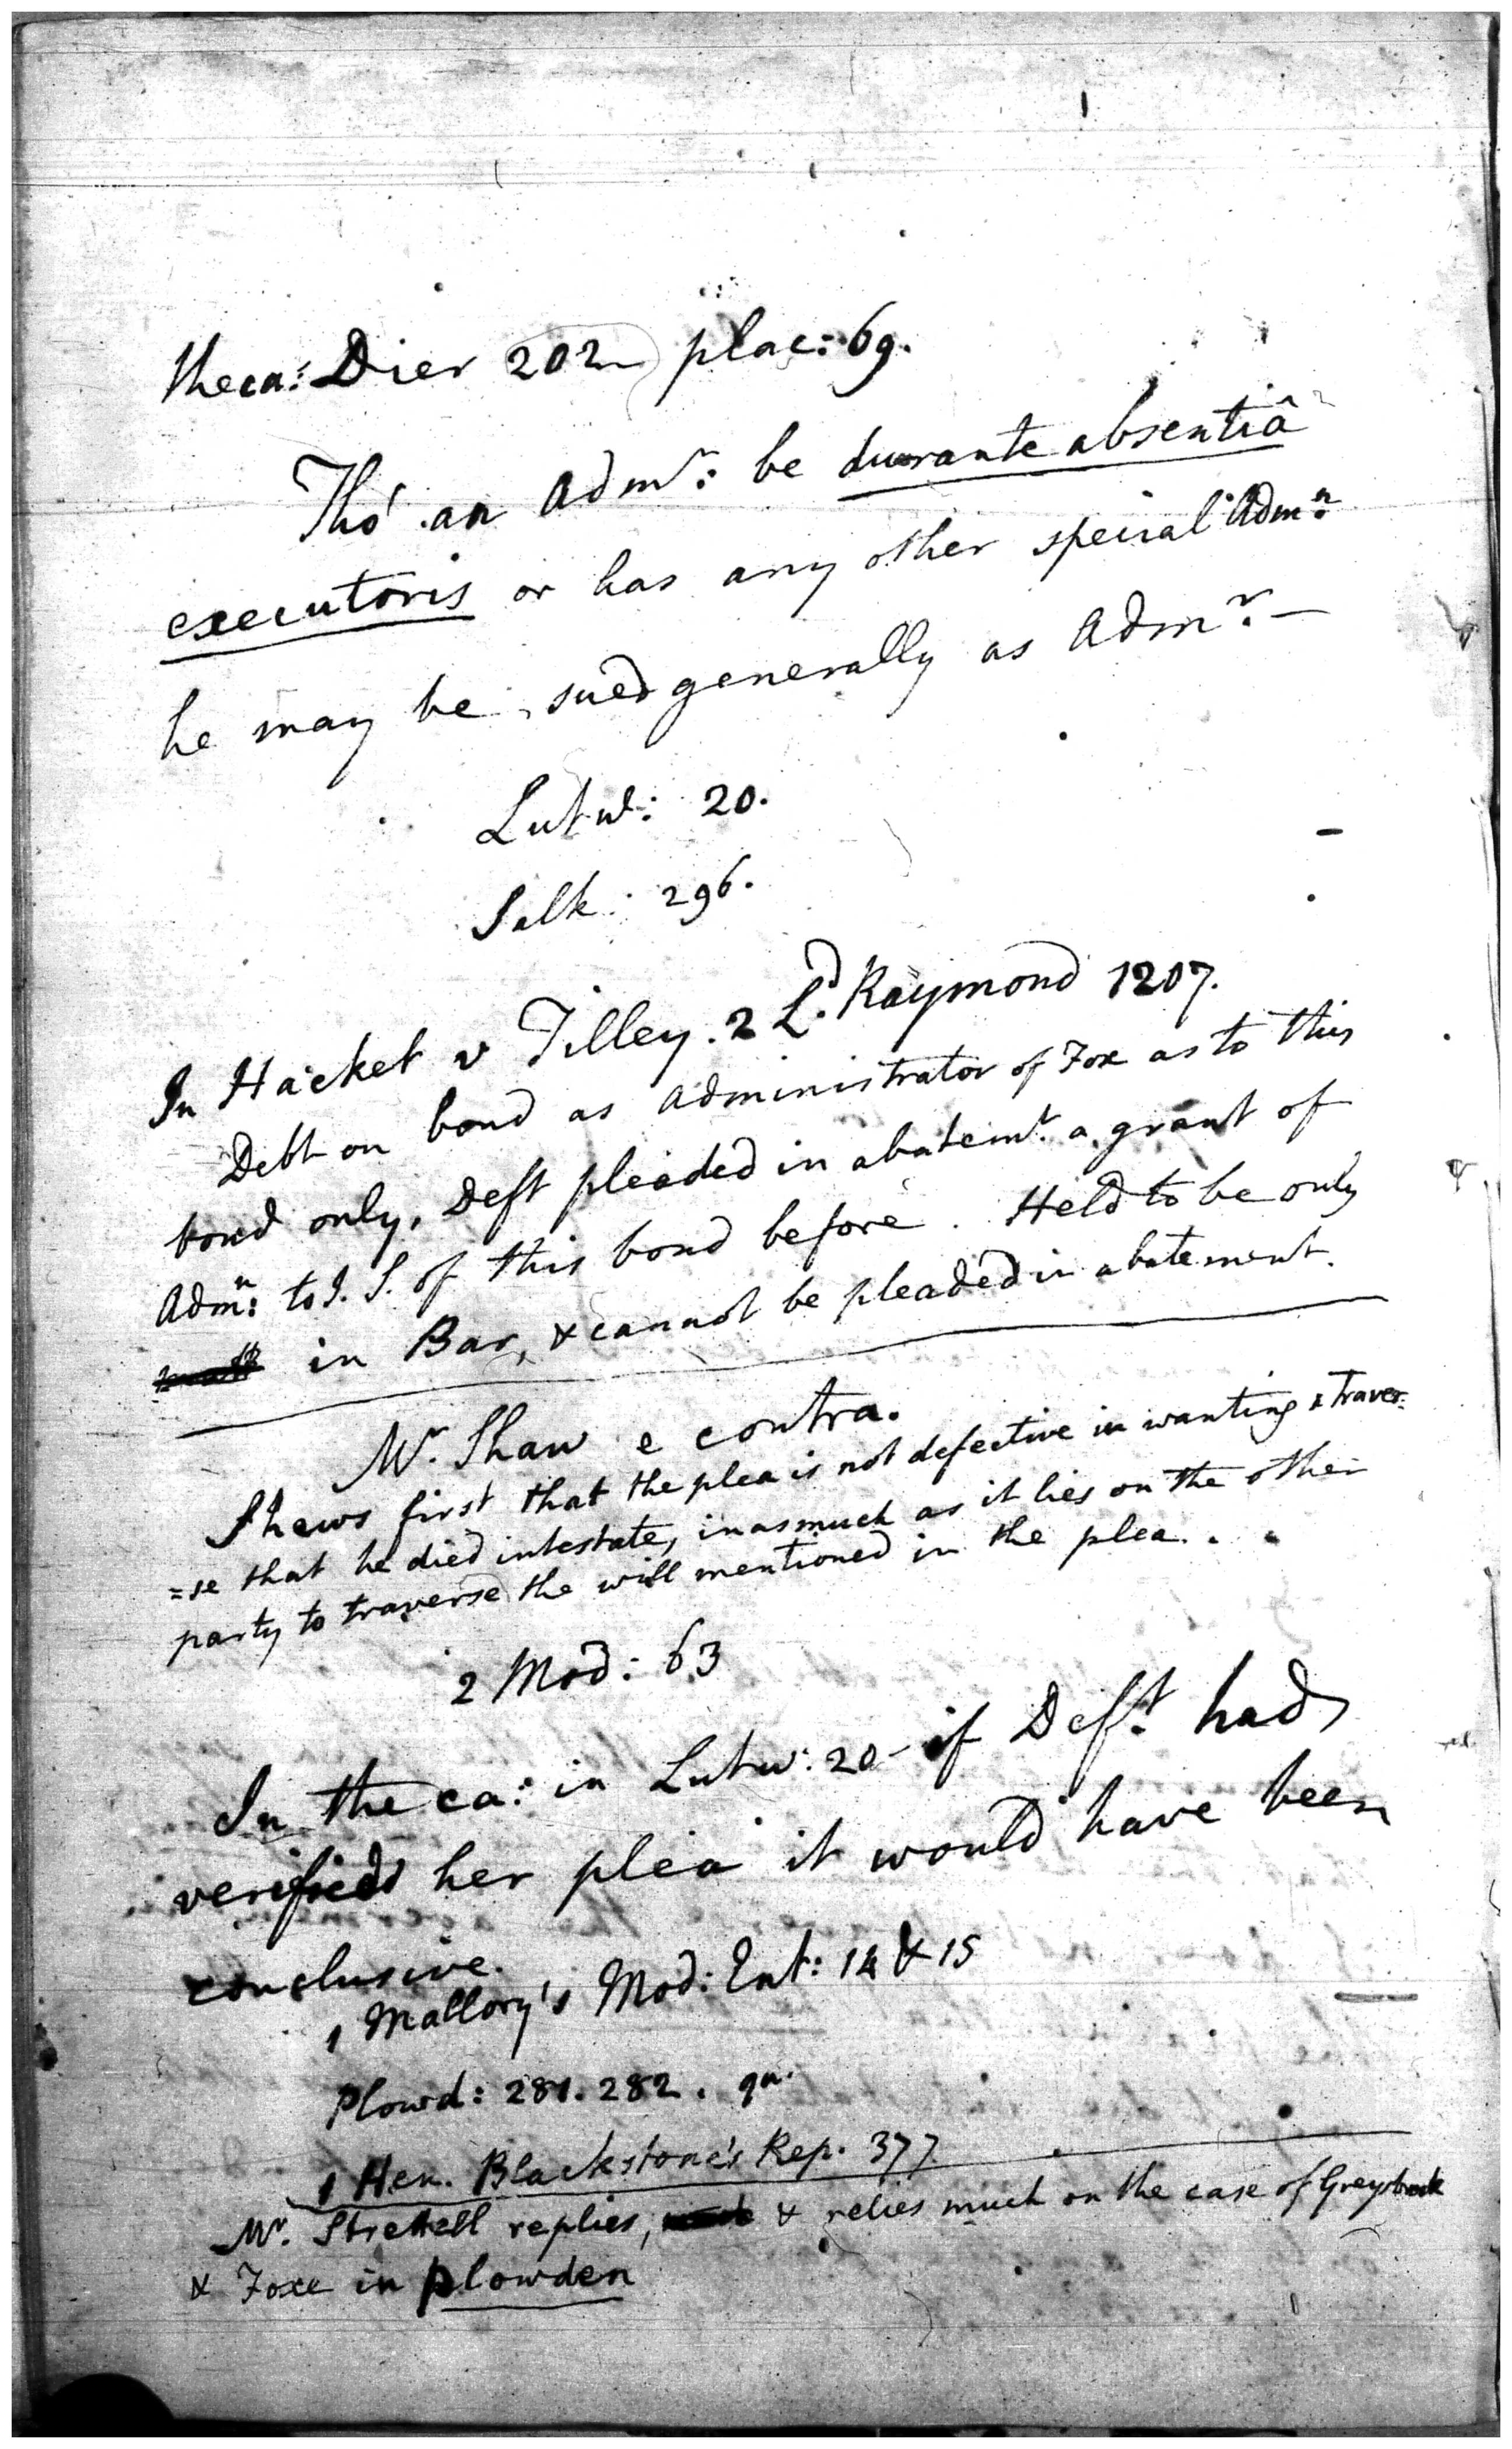 the ca: Dier 202 plac: 69.
Tho' an Adm^r: be durante absentiâ
executoris or has any other special Adm^n:
he may be sued generally as Adm^r: —
Lutw: 20.
Salk: 296.
In Hacket v Tilley. 2 L^d. Raymond 1207.
Debt on bond as administrator of Fox as to this
bond only, Deft pleaded in abatem^t. a grant of
Adm^n: to J. S. of this bond before. Held to be only
in Bar, & cannot be pleaded in abatement.
M^r. Shaw e contra.
Shews first that the plea is not defective in wanting a traver=
=se that he died intestate, inasmuch as it lies on the other
party to traverse the will mentioned in the plea.
2 Mod: 63
In the ca: in Lutw: 20 – if Def^t. had
verified her plea it would have been
conclusive.
1 Mallory's Mod: Ent: 14 & 15
Plowd: 281. 282. qu.
1 Hen. Blackstone's Rep. 377.
M^r. Strettell replies, & relies much on the case of Greysbrook
& Foxe in Plowden